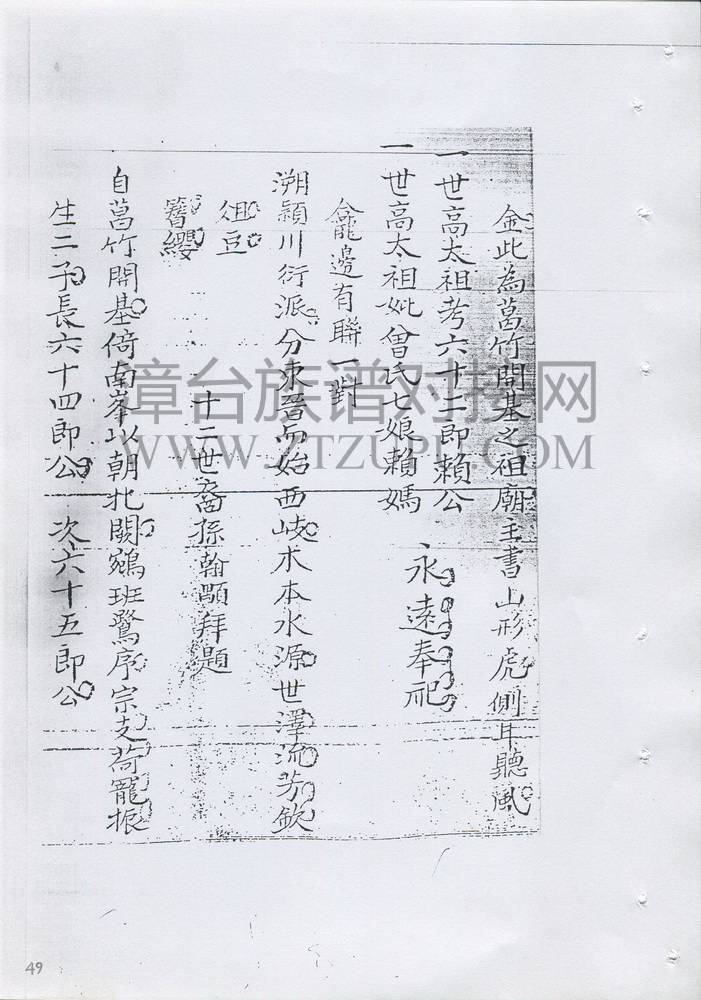 金此為菖竹開基之祖廟主書山形虎側耳聽風
一世高太祖考六十三郎賴公
一世高太祖妣曾氏七娘賴媽
永遠奉祀
龕邊有聯一對
溯穎川衍派分東晉而始西岐木本水源世澤流芳欽
俎豆
十二世裔孫翰顯拜題
簪纓
自菖竹開基倚南峯以朝北闕鵷班鷺序宗支荷寵振
生二子長六十四郎公 次六十五郎公
漳台族谱对接网
WWW.ZTZUPU.COM
49